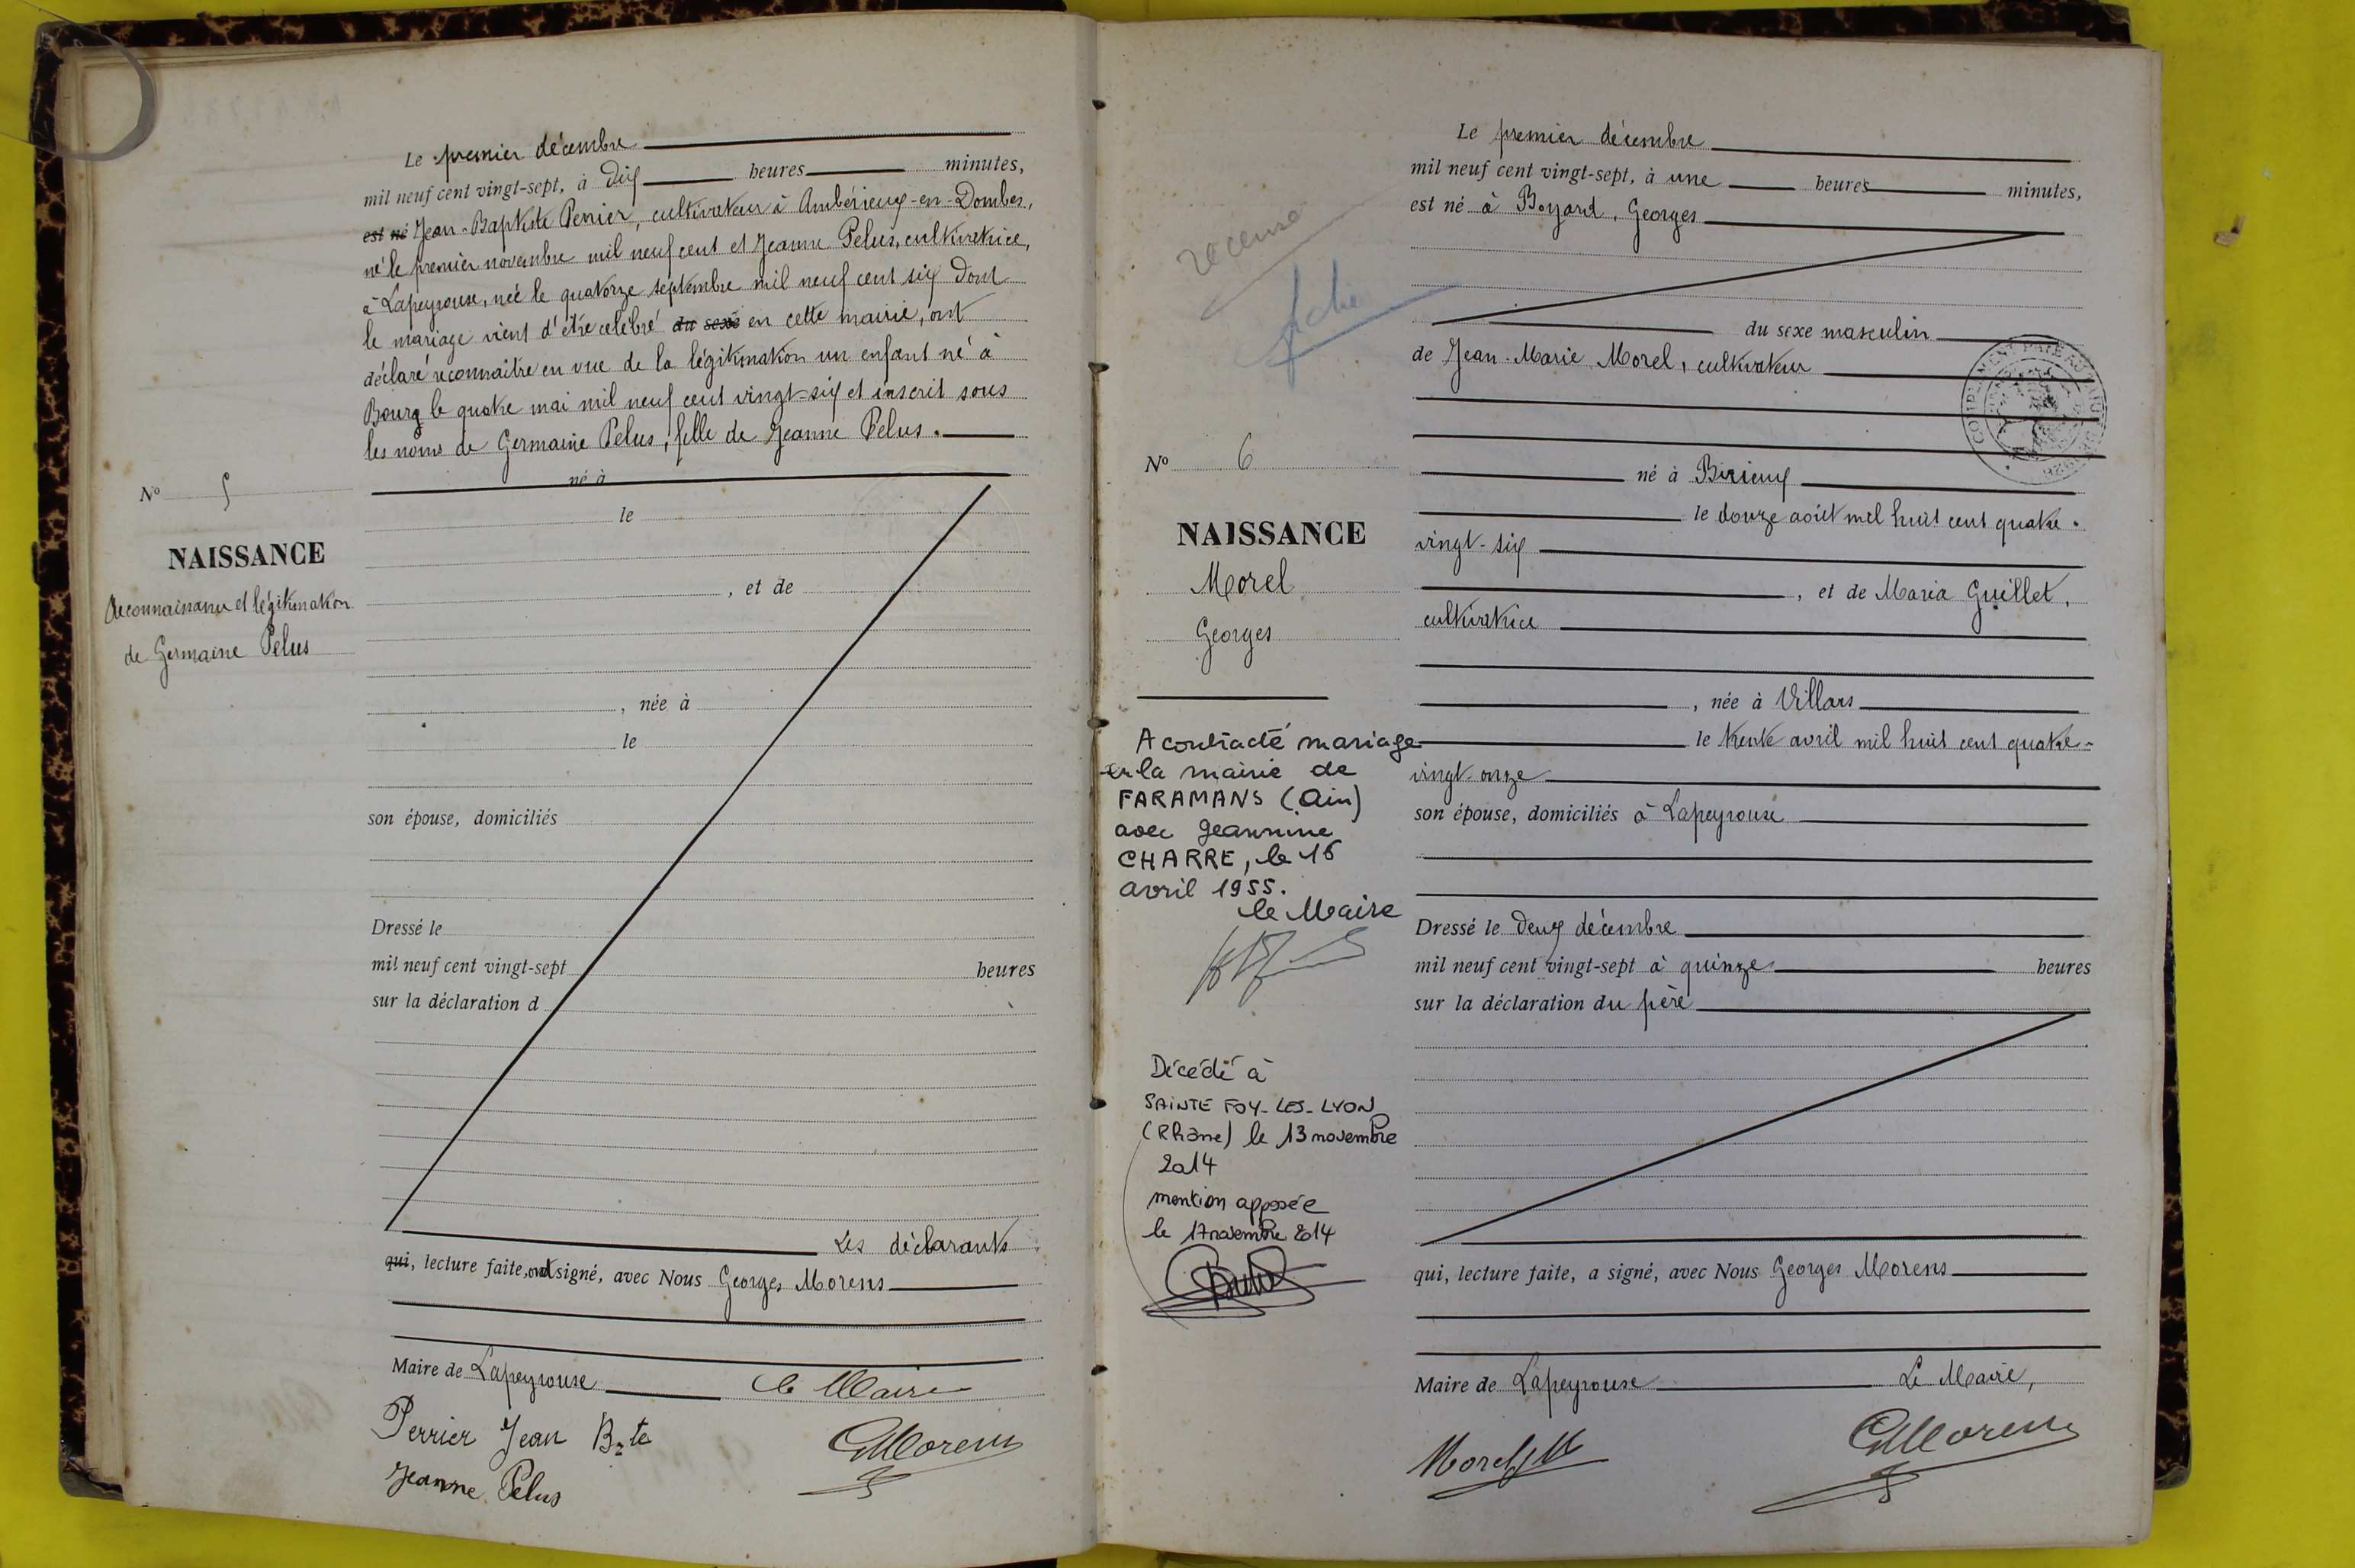 Le premier décembre
mil neuf cent vingt-sept, à dix heures minutes,
est né Jean-Baptiste Perrier, cultivateur à Ambérieux-en-Dombes,
né le premier novembre mil neuf cent et Jeanne Pelus, cultivatrice,
à Lapeyrouse, née le quatorze septembre mil neuf cent six dont
le mariage vient d'être célébré du sexe en cette mairie, ont
déclaré reconnaître en vue de la légitimation un enfant né à
Bourg le quatre mai mil neuf cent vingt-six et inscrit sous
les noms de Germaine Pelus, fille de Jeanne Pelus.
né à
No 5
le
NAISSANCE
, et de
Reconnaissance et légitimation
de Germaine Pelus
, née à
le
son épouse, domiciliés
Dressé le
mil neuf cent vingt-sept heures
sur la déclaration d
Les déclarants
qui, lecture faite, ont signé, avec Nous Georges Morens
Maire de Lapeyrouse Le Maire
Perrier Jean Bte
GMorens
Jeanne Pelus
Le premier décembre
mil neuf cent vingt-sept, à une heures minutes,
est né à Boyard, Georges
recensé
fiche
du sexe masculin
de Jean-Marie Morel, cultivateur
No 6
né à Birieux
le douze août mil huit cent quatre-
NAISSANCE
vingt-six
Morel
, et de Maria Guillet,
Georges
cultivatrice
, née à Villars
le trente avril mil huit cent quatre-
vingt-onze
son épouse, domiciliés à Lapeyrouse
A contracté mariage
en la mairie de
FARAMANS (Ain)
avec Jeannine
CHARRE, le 16
avril 1955.
le Maire
Dressé le deux décembre
mil neuf cent vingt-sept à quinze heures
sur la déclaration du père
Décédé à
SAINTE FOY-LES-LYON
(Rhône) le 13 novembre
2014
mention apposée
le 17 novembre 2014
qui, lecture faite, a signé, avec Nous Georges Morens
Maire de Lapeyrouse Le Maire,
Morel JM
GMorens